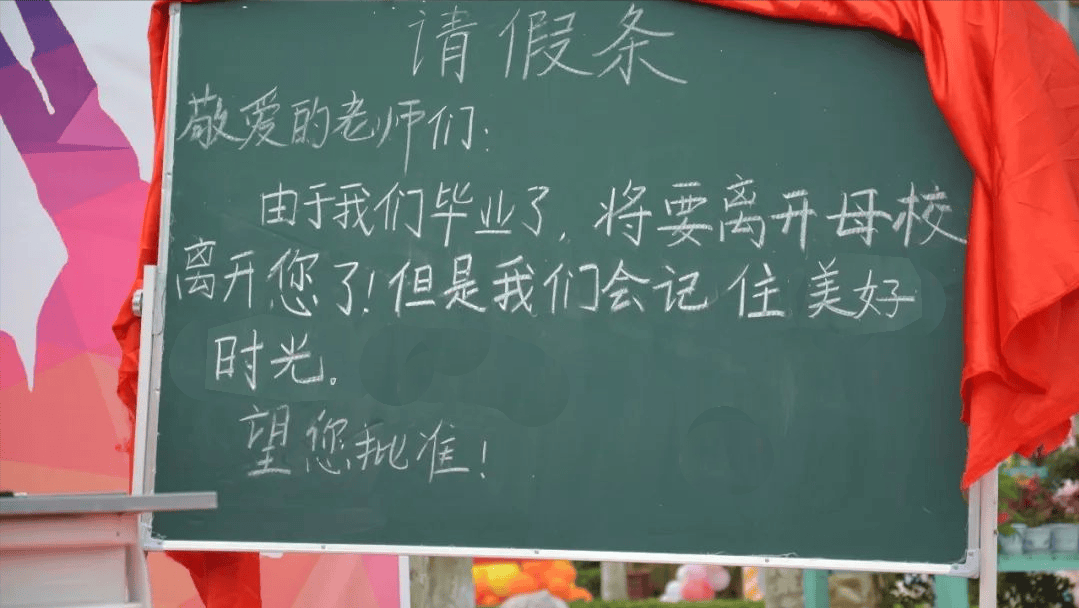 请假条
敬爱的老师们：
由于我们毕业了，将要离开母校
离开您了！但是我们会记住美好
时光。
望您批准！